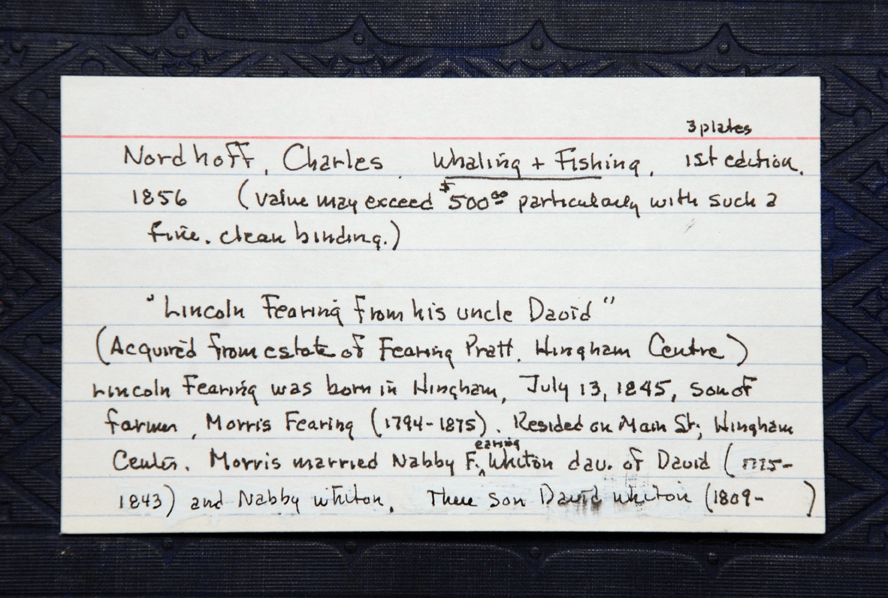 3 plates
Nordhoff, Charles. Whaling + Fishing. 1st edition.
1856 (value may exceed $500.00 particularly with such a
fine, clean binding.)
"Lincoln Fearing from his uncle David"
(Acquired from estate of Fearing Pratt, Hingham Centre)
Lincoln Fearing was born in Hingham, July 13, 1845, son of
farmer, Morris Fearing (1794-1875). Resided on Main St; Hingham
Center. Morris married Nabby Fearing Whiton dau. of David (1775-
1843) and Nabby Whiton. There son David Whiton (1809- )